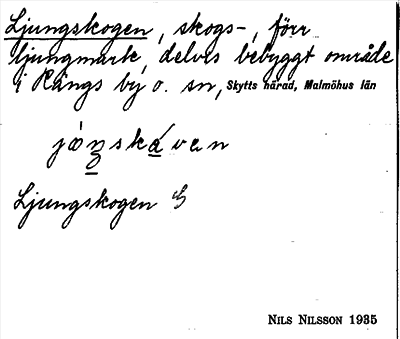 Ljungskogen, skogs-, förr
ljungmark, delvis bebyggt område
i Kängs by o. sn, Skytts härad, Malmöhus län
Ljungskogen
NILS NILSSON 1935